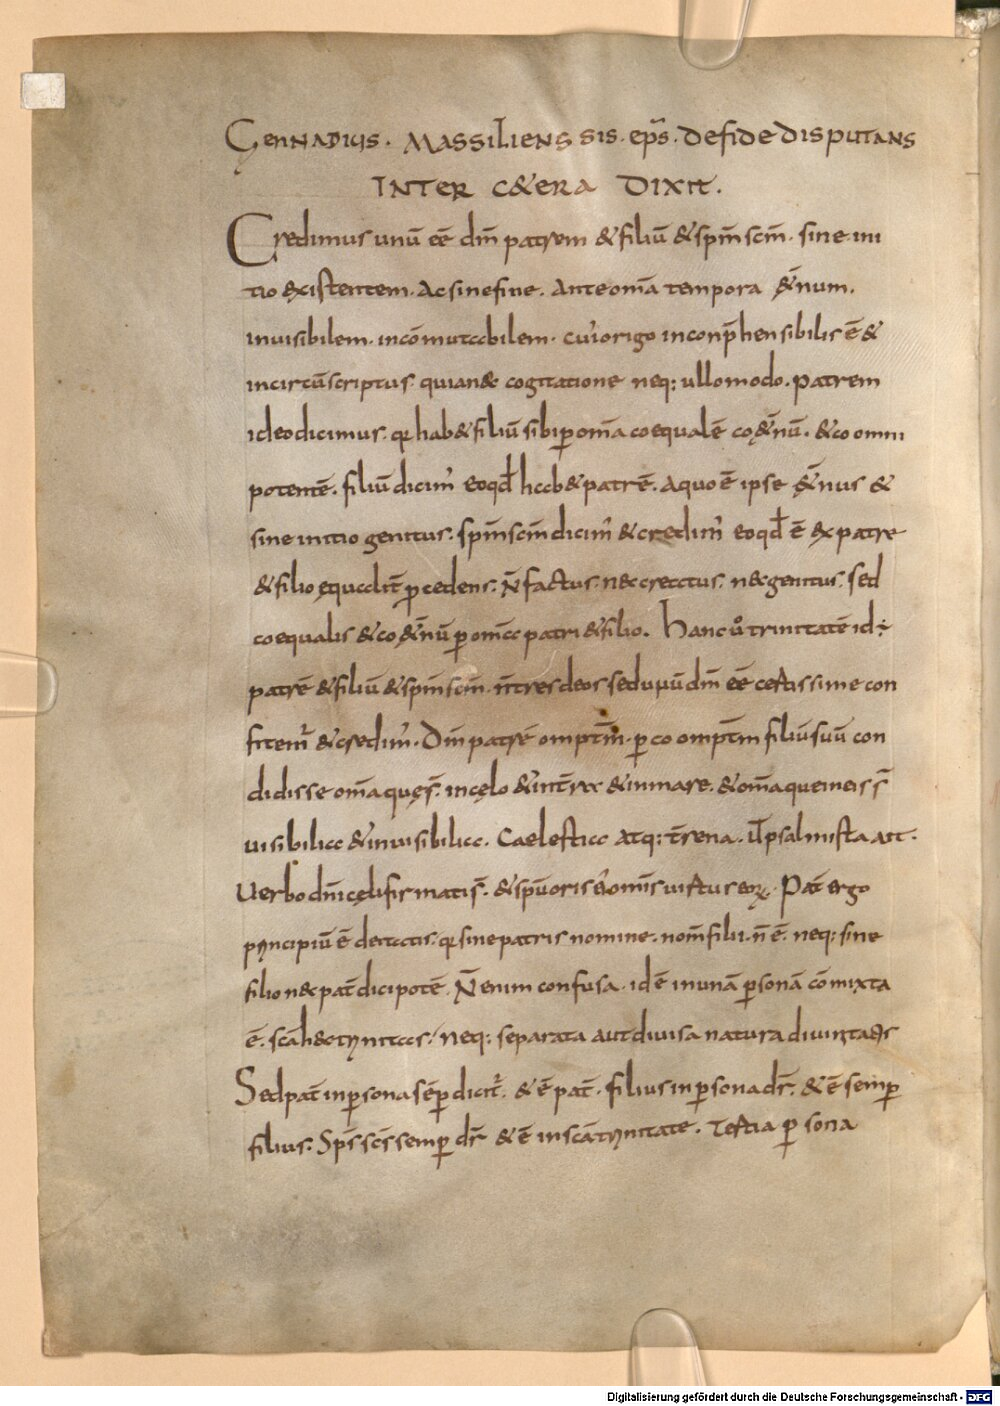 GENNADIUS . MASSILIENSSIS . ep̄s . DE FIDE DISPUTANS
INTER C&ERA DIXIT .
Credimus unū eē dm̄ patrem & filiū & sp̄m scm̄ . sine ini
tio existentem . Ac sine fine . Ante om̄a tempora &̄num .
inuisibilem . incōmutabilem . cui' origo inconp̄hensibilis ē &
incircūscriptus . quia nec cogitatione neq; ullomodo . patrem
ideo dicimus . qr hab& filiū sibi ꝑ om̄a coequalē co&̄nū . & co omni
potentē . filiū dicim' eo qd̄ hab& patrē . A quo ē ipse &̄nus &
sine initio genitus . sp̄m scm̄ dicim' & credim' eo qd̄ ē ex patre
& filio ęqualit̄ p̱cedens . N̄ factus . nec creatus . nec genitus . sed
coequalis & co&̄nū ꝑ om̄a patri & filio . Hanc ů trinitatē id÷
patrē & filiū & sp̄m scm̄ . n̄ tres deos sed unū dm̄ eē certissime con
fitem' & credim' . Dm̄ patrē omptm̄ . ꝑ co omptm̄ filiū suū con
didisse om̄a quę s̄ . in cęlo & in t̄ra & in mare . & om̄a que in eis s̄
uisibilia & inuisibilia . Caelestia atq; t̄rena . ut psalmista ait .
Uerbo dn̄i cęli firmati s̄ . & sp̄u oris ei' om̄is uirtus eoꝝ . Pat̄ ergo
principiū ē deitatis . qr sine patris nomine . nom̄ filii . n̄ ē . neq; sine
filio nec pat̄ dici potē . N̄ enim confusa . id ē in unā ꝑsonā cōmixta
ē . scā haec trinitas . neq; separata aut diuisa natura diuinitatis
Sed pat̄ in ꝑsona sēꝑ dicit' . & ē pat̄ . filius in ꝑsona dr̄ . & ē semꝑ
filius . Sp̄s scs̄ semꝑ dr̄ & ē in scā trinitate . Tertia ꝑsona
Digitalisierung gefördert durch die Deutsche Forschungsgemeinschaft - DFG